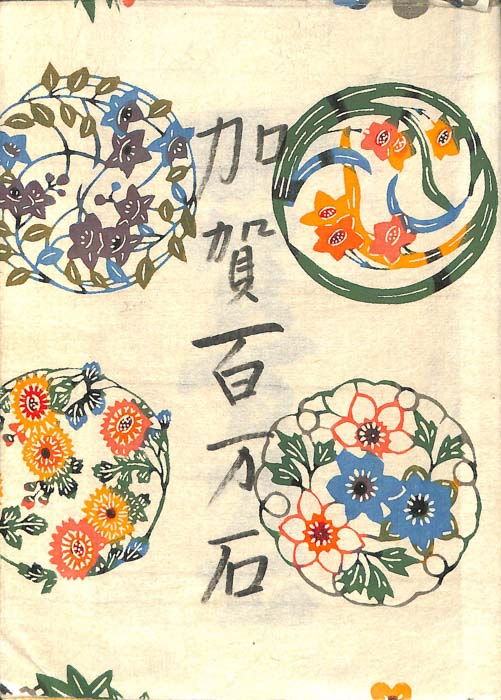 加賀百万石